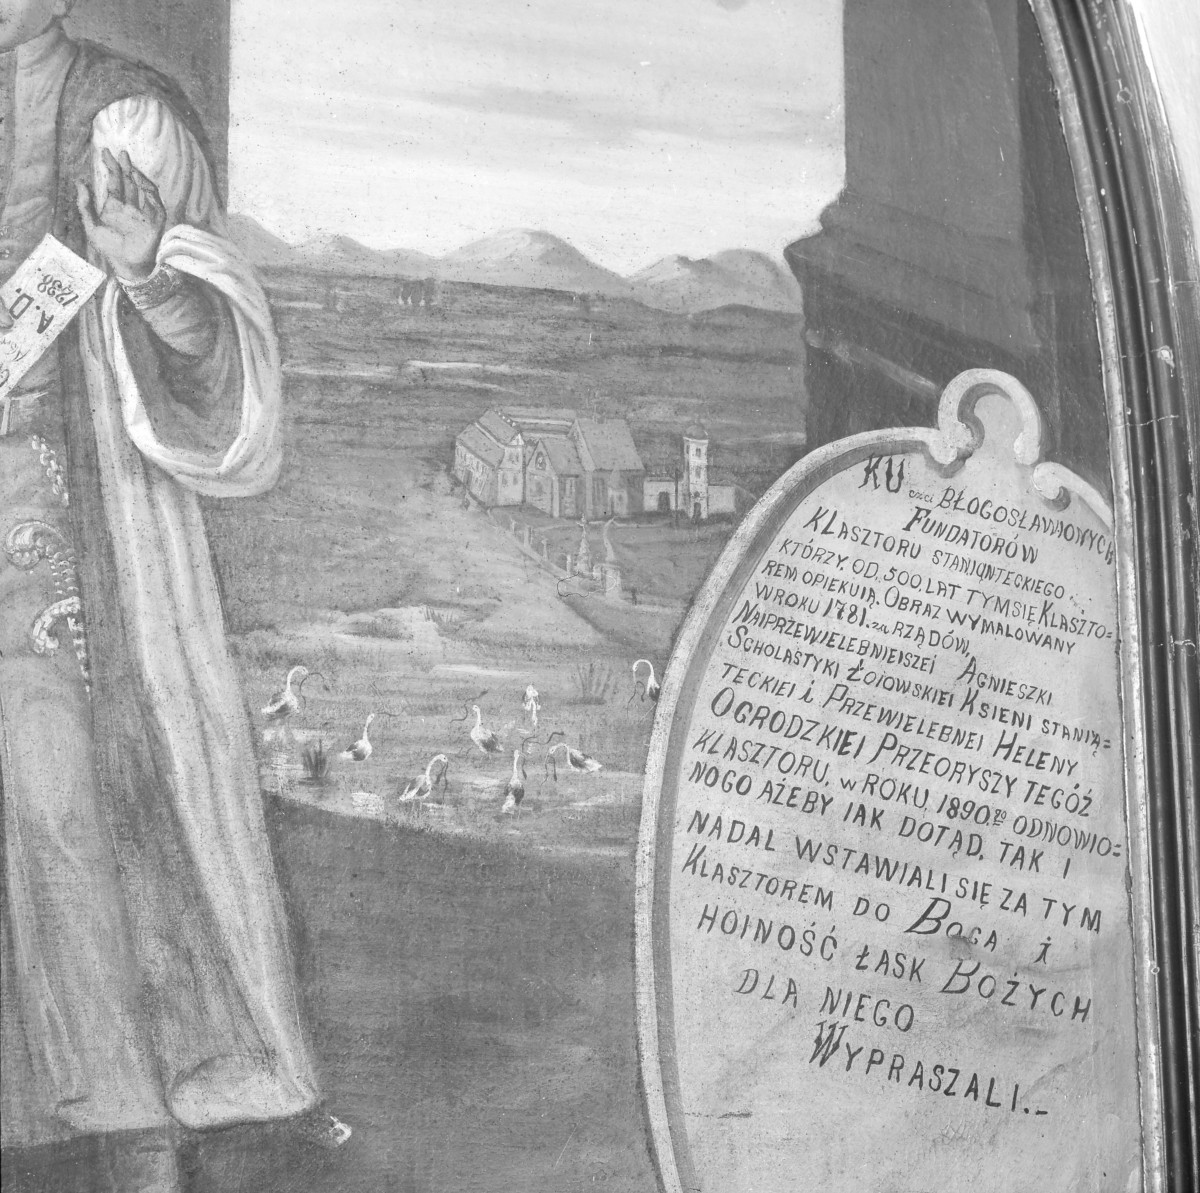 A. D.
1238.
KU czci BŁOGOSŁAWIONYCH
FUNDATORÓW
KLASZTORU STANIĄNTECKIEGO
KTÓRZY. OD. 500. LAT TYMSIĘ KLASZTO=
REM OPIEKUIĄ. OBRAZ WYMALOWANY
WROKU 1781. za RZĄDÓW.
NAIPRZEWIELEBNIEISZEJ AGNIESZKI
SCHOLASTYKI ŻOIOWSKIEI KSIENI STANIĄ=
TECKIEI i PRZEWIELEBNEI HELENY
OGRODZKIEI PRZEORYSZY TEGÓŻ
KLASZTORU, w ROKU. 1890. go ODNOWIO=
NOGO AŻEBY IAK DOTĄD, TAK I
NADAL WSTAWIALI SIĘ ZA TYM
KLASZTOREM DO BOGA i
HOINOŚĆ ŁASK BOŻYCH
DLA NIEGO
WYPRASZALI..